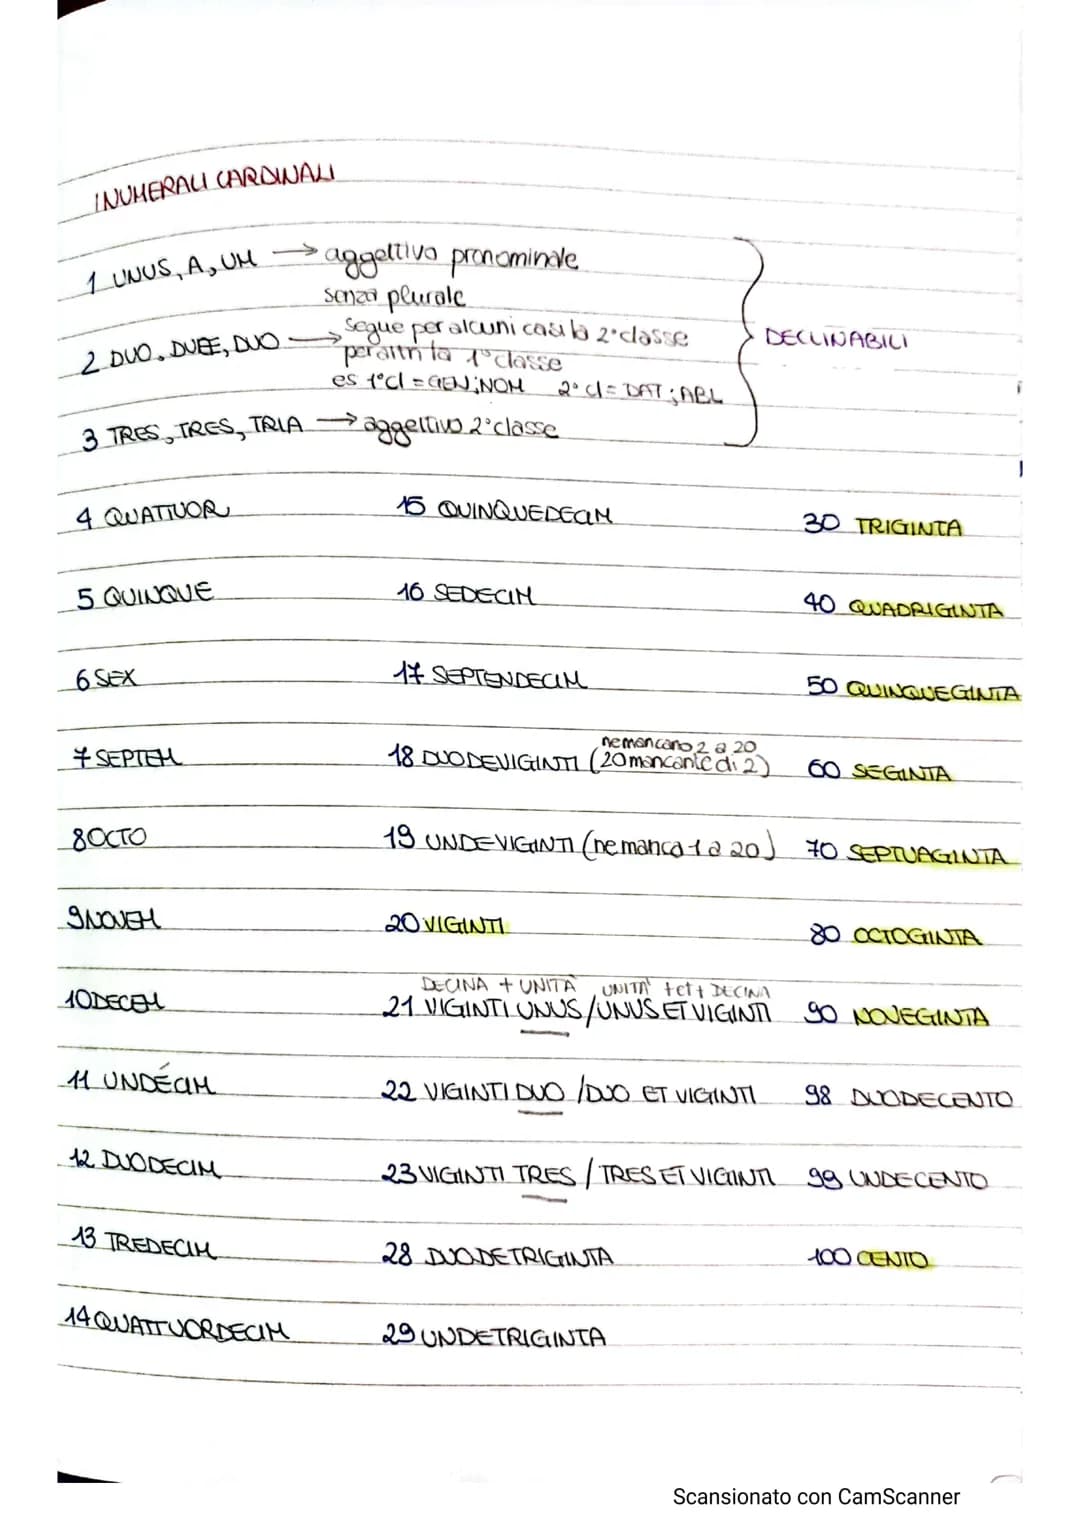 I NUMERALI CARDINALI
1 UNUS, A, UM → aggettivo pronominale
senza plurale
2 DUO, DUEE, DUO → segue per alcuni casi la 2° classe
per altri la 1° classe
es 1° cl = GEN; NOM 2° cl = DAT; ABL
3 TRES, TRES, TRIA → aggettivo 2° classe
DECLINABILI
4 QUATTUOR
5 QUINQUE
6 SEX
7 SEPTEM
8 OCTO
9 NOVEM
10 DECEM
11 UNDÉCIM
12 DUODECIM
13 TREDECIM
14 QUATTUORDECIM
15 QUINQUEDECIM
16 SEDECIM
17 SEPTENDECIM
ne mancano 2 a 20
18 DUODEVIGINTI (20 mancante di 2)
19 UNDEVIGINTI (ne manca 1 a 20)
20 VIGINTI
DECINA + UNITÀ UNITÀ + et + DECINA
21 VIGINTI UNUS / UNUS ET VIGINTI
22 VIGINTI DUO / DUO ET VIGINTI
23 VIGINTI TRES / TRES ET VIGINTI
28 DUODETRIGINTA
29 UNDETRIGINTA
30 TRIGINTA
40 QUADRIGINTA
50 QUINQUEGINTA
60 SEGINTA
70 SEPTUAGINTA
80 OCTOGINTA
90 NOVEGINTA
98 DUODECENTO
99 UNDECENTO
100 CENTO
Scansionato con CamScanner